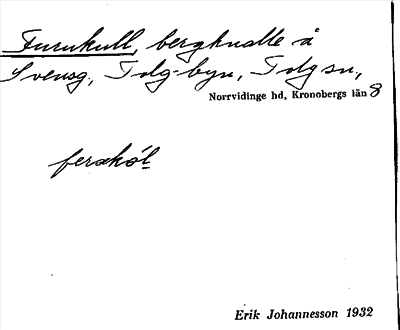 Furukull, bergknalle å
Svensg., Tolg-byn, Tolg sn,
Norrvidinge hd, Kronobergs län 8
Erik Johannesson 1932